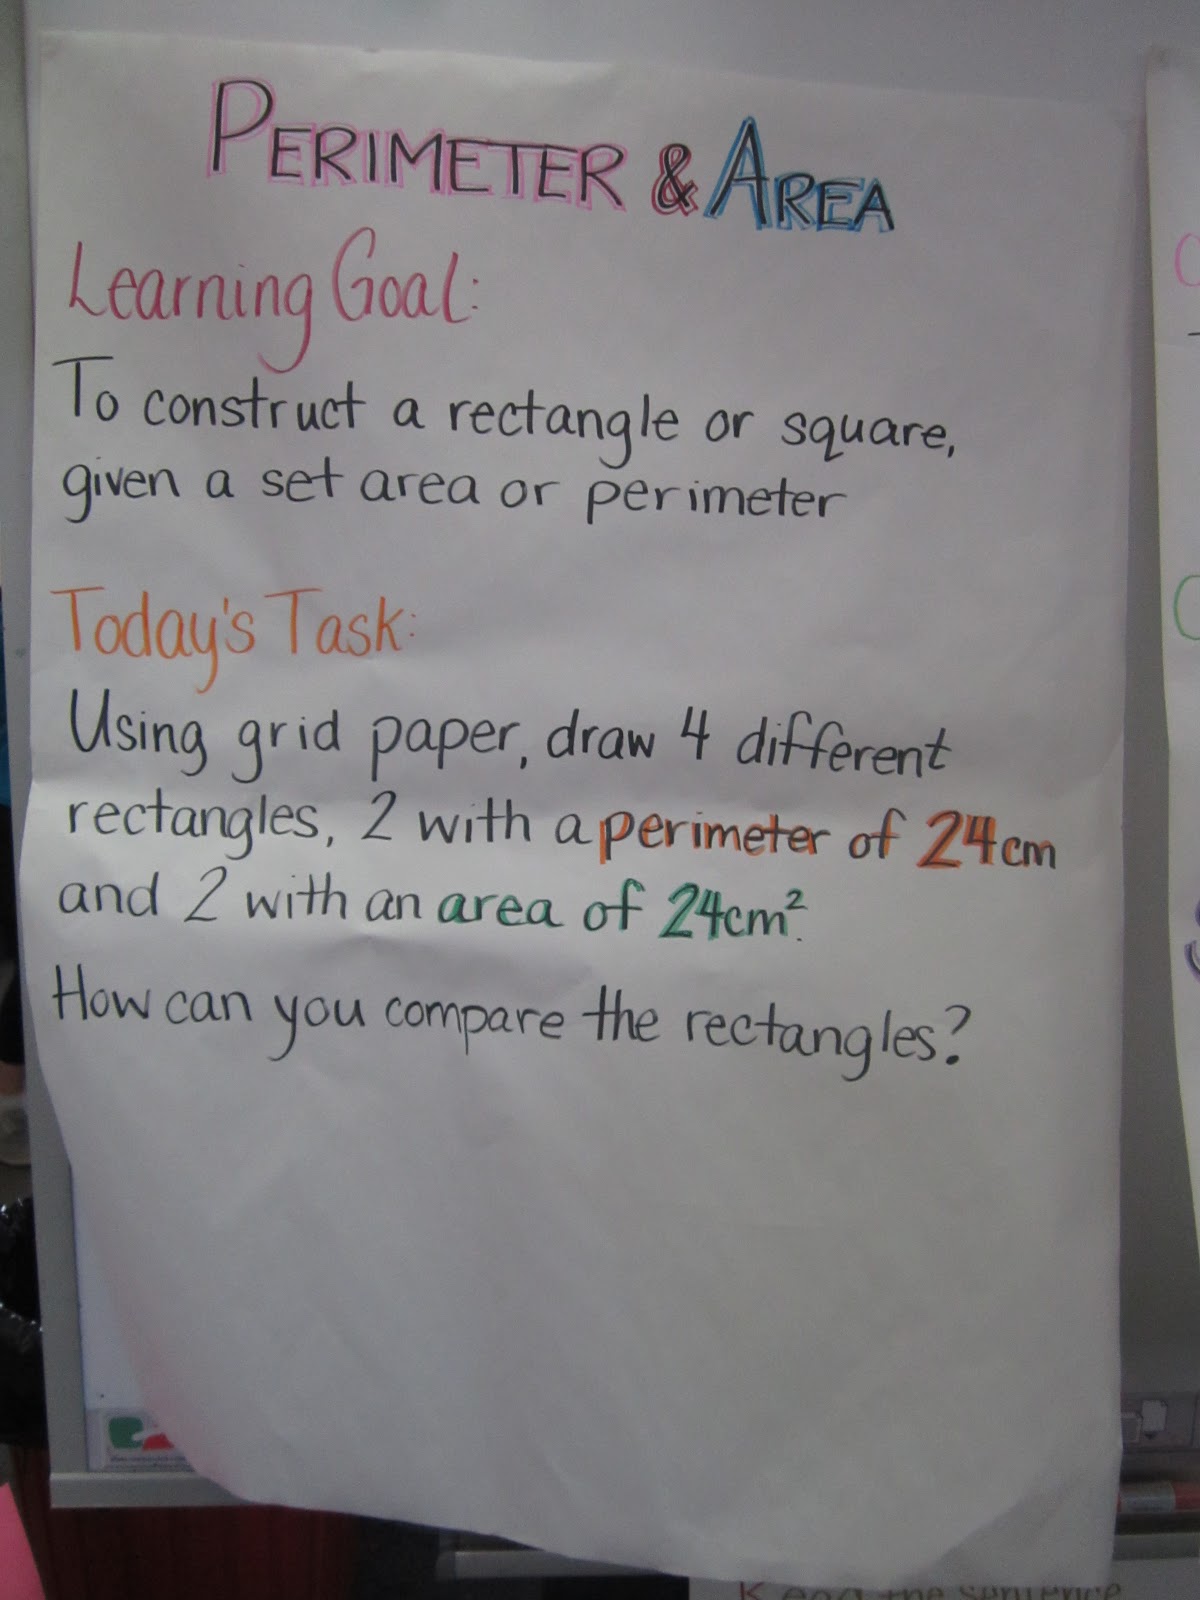 PERIMETER & AREA
Learning Goal:
To construct a rectangle or square,
given a set area or perimeter
Today's Task:
Using grid paper, draw 4 different
rectangles, 2 with a perimeter of 24cm
and 2 with an area of 24cm².
How can you compare the rectangles?
Read the sentence